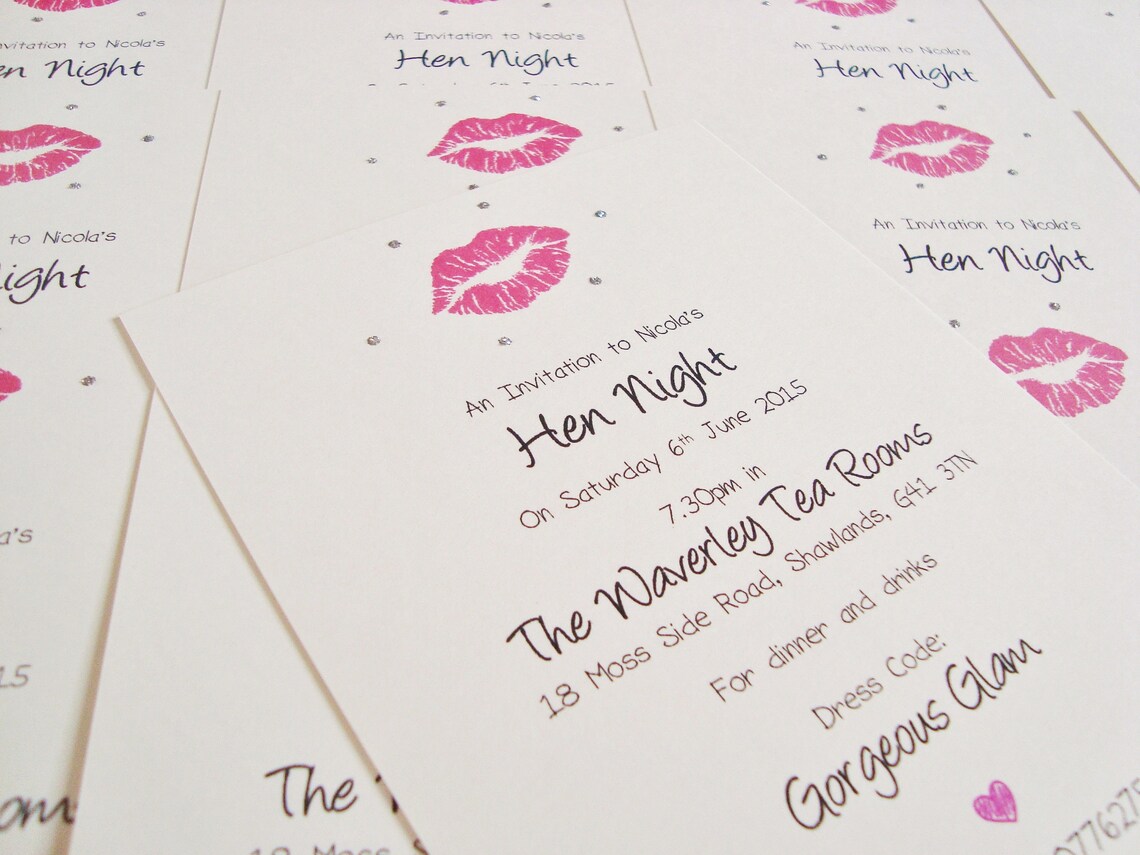 An Invitation to Nicola's
Hen Night
An Invitation to Nicola's
Hen Night
An Invitation to Nicola's
Hen Night
to Nicola's
An Invitation to Nicola's
Hen Night
An Invitation to Nicola's
Hen Night
On Saturday 6th June 2015
7.30pm in
The Waverley Tea Rooms
18 Moss Side Road, Shawlands, G41 3TN
For dinner and drinks
Dress Code:
Gorgeous Glam
The
18 Moss